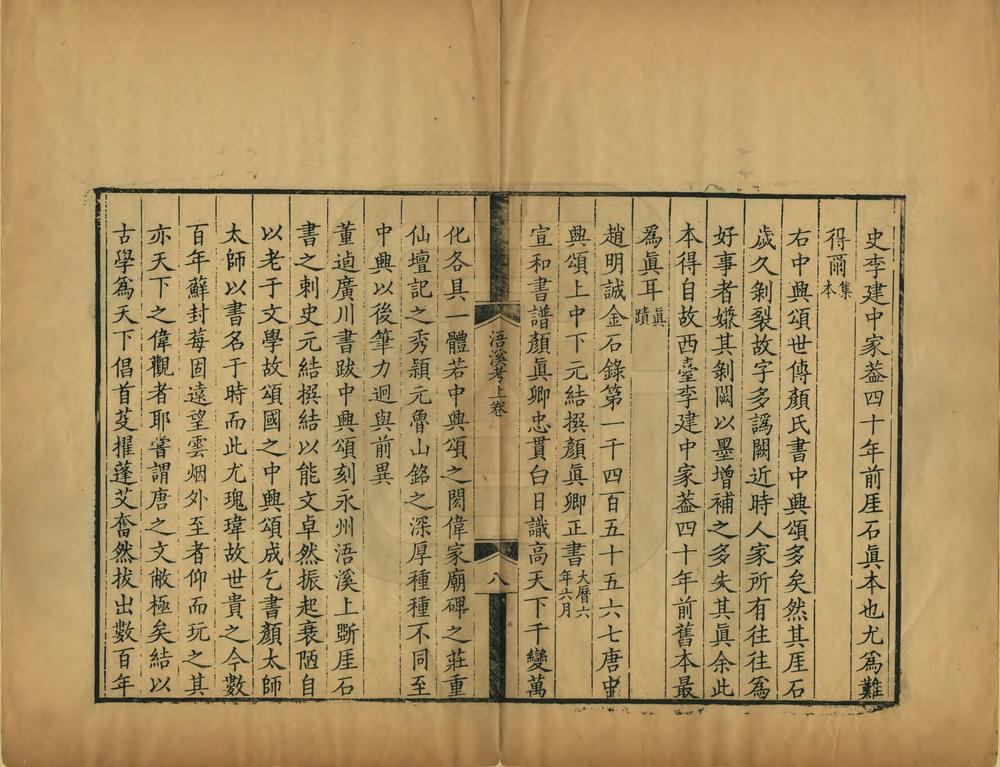 史李建中家葢四十年前厓石眞本也尤爲難
得爾集本
右中興頌世傳顏氏書中興頌多矣然其厓石
歲久剝裂故字多譌闕近時人家所有往往爲
好事者嫌其剝闕以墨增補之多失其眞余此
本得自故西臺李建中家葢四十年前舊本最
爲眞耳眞蹟
趙明誠金石錄第一千四百五十五六七唐中
興頌上中下元結撰顏眞卿正書大曆六年六月
宣和書譜顏眞卿忠貫白日識高天下千變萬
浯溪考上卷
八
化各具一體若中興頌之閎偉家廟碑之莊重
仙壇記之秀穎元魯山銘之深厚種種不同至
中興以後筆力迥與前異
董逌廣川書跋中興頌刻永州浯溪上斲厓石
書之刺史元結撰結以能文卓然振起衰陋自
以老于文學故頌國之中興頌成乞書顏太師
太師以書名于時而此尤瑰瑋故世貴之今數
百年蘚封莓固遠望雲烟外至者仰而玩之其
亦天下之偉觀者耶嘗謂唐之文敝極矣結以
古學爲天下倡首芟擢蓬艾奮然拔出數百年